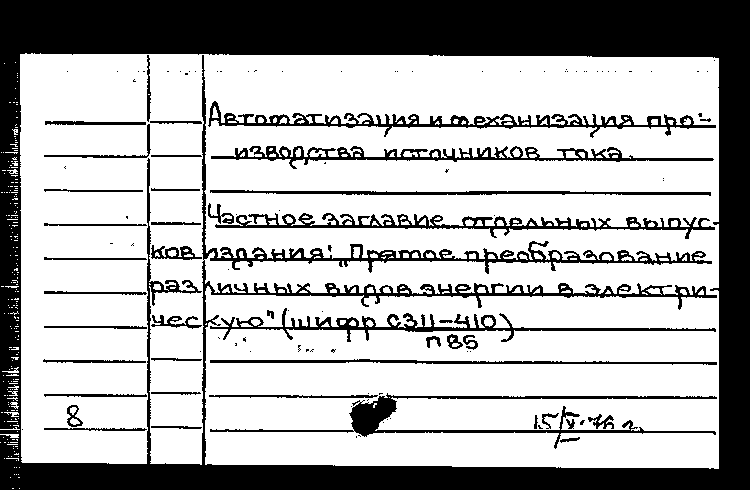 Автоматизация и механизация про-
изводства источников тока.
Частное заглавие отдельных выпус-
ков издания: „Прямое преобразование
различных видов энергии в электри-
ческую" (шифр С311-410)
п86
8
15/V-76 г.